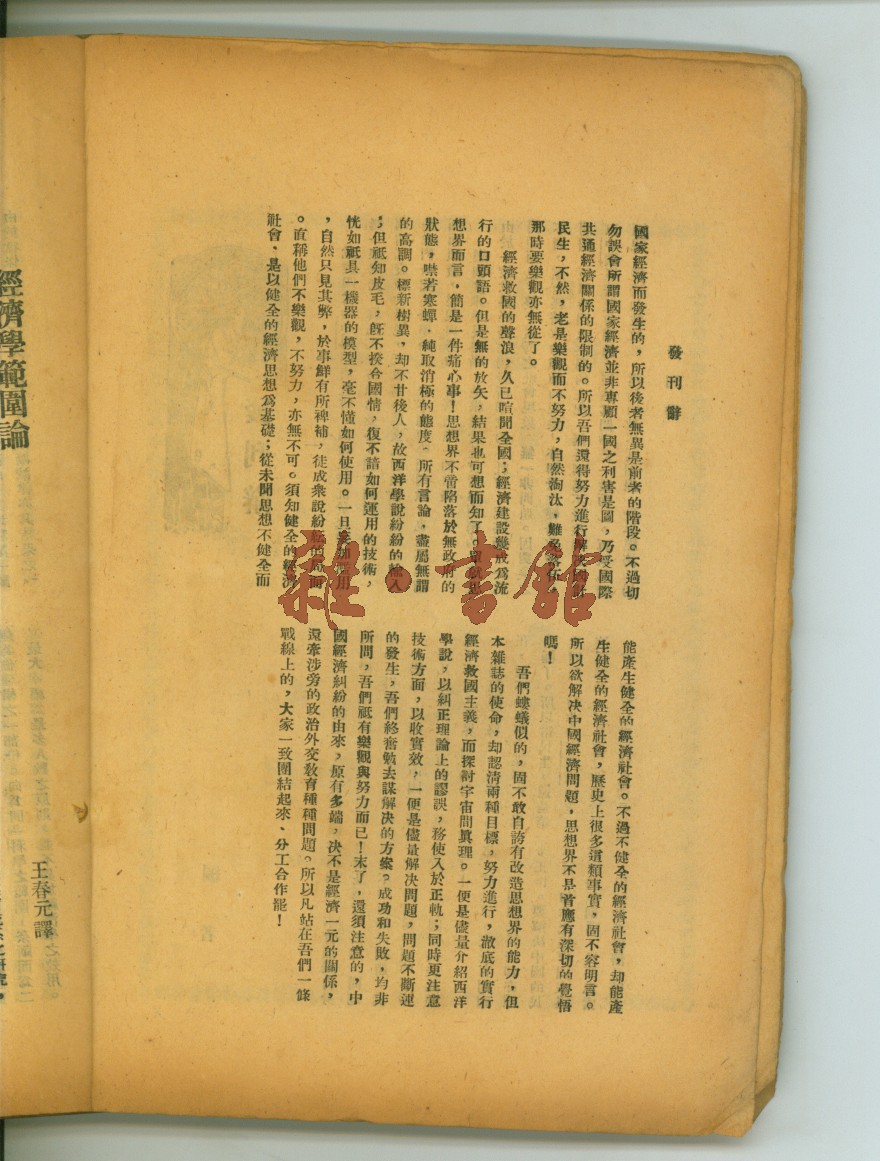 發刊辭
國家經濟而發生的，所以後者無異是前者的階段。不過切
勿誤會所謂國家經濟並非專顧一國之利害是圖，乃受國際
共通經濟關係的限制的。所以吾們還得努力進行解決國計
民生，不然，老是樂觀而不努力，自然淘汰，難免
那時要樂觀亦無從了。
經濟救國的聲浪，久已喧聞全國；經濟建設幾成爲流
行的口頭語。但是無的放矢，結果也可想而知了。單就思
想界而言，簡是一件痛心事！思想界不啻陷落於無政府的
狀態，噤若寒蟬．純取消極的態度。所有言論，盡屬無謂
的高調。標新樹異，却不甘後人，故西洋學說紛紛的輸入
；但祇知皮毛，旣不揆合國情，復不諳如何運用的技術，
恍如祇具一機器的模型，毫不懂如何使用。一旦用
，自然只見其弊，於事鮮有所裨補，徒成衆說紛紜的局面
。直稱他們不樂觀，不努力，亦無不可。須知健全的經濟
社會、是以健全的經濟思想爲基礎；從未聞思想不健全而
能產生健全的經濟社會。不過不健全的經濟社會，却能產
生健全的經濟社會，歷史上很多這類事實，固不容明言。
所以欲解決中國經濟問題，思想界不是首應有深切的覺悟
嗎！
吾們螻蟻似的，固不敢自誇有改造思想界的能力，但
本雜誌的使命，却認清兩種目標，努力進行，澈底的實行
經濟救國主義，而探討宇宙間眞理。一便是儘量介紹西洋
學說，以糾正理論上的謬誤，務使入於正軌；同時更注意
技術方面，以收實效，一便是儘量解決問題，問題不斷連
的發生，吾們終奮勉去謀解決的方案。成功和失敗，均非
所問，吾們祇有樂觀與努力而已！末了，還須注意的，中
國經濟糾紛的由來，原有多端，決不是經濟一元的關係，
還牽涉旁的政治外交敎育種種問題。所以凡站在吾們一條
戰線上的，大家一致團結起來、分工合作罷！
經濟學範圍論
王春元譯
雜·書館